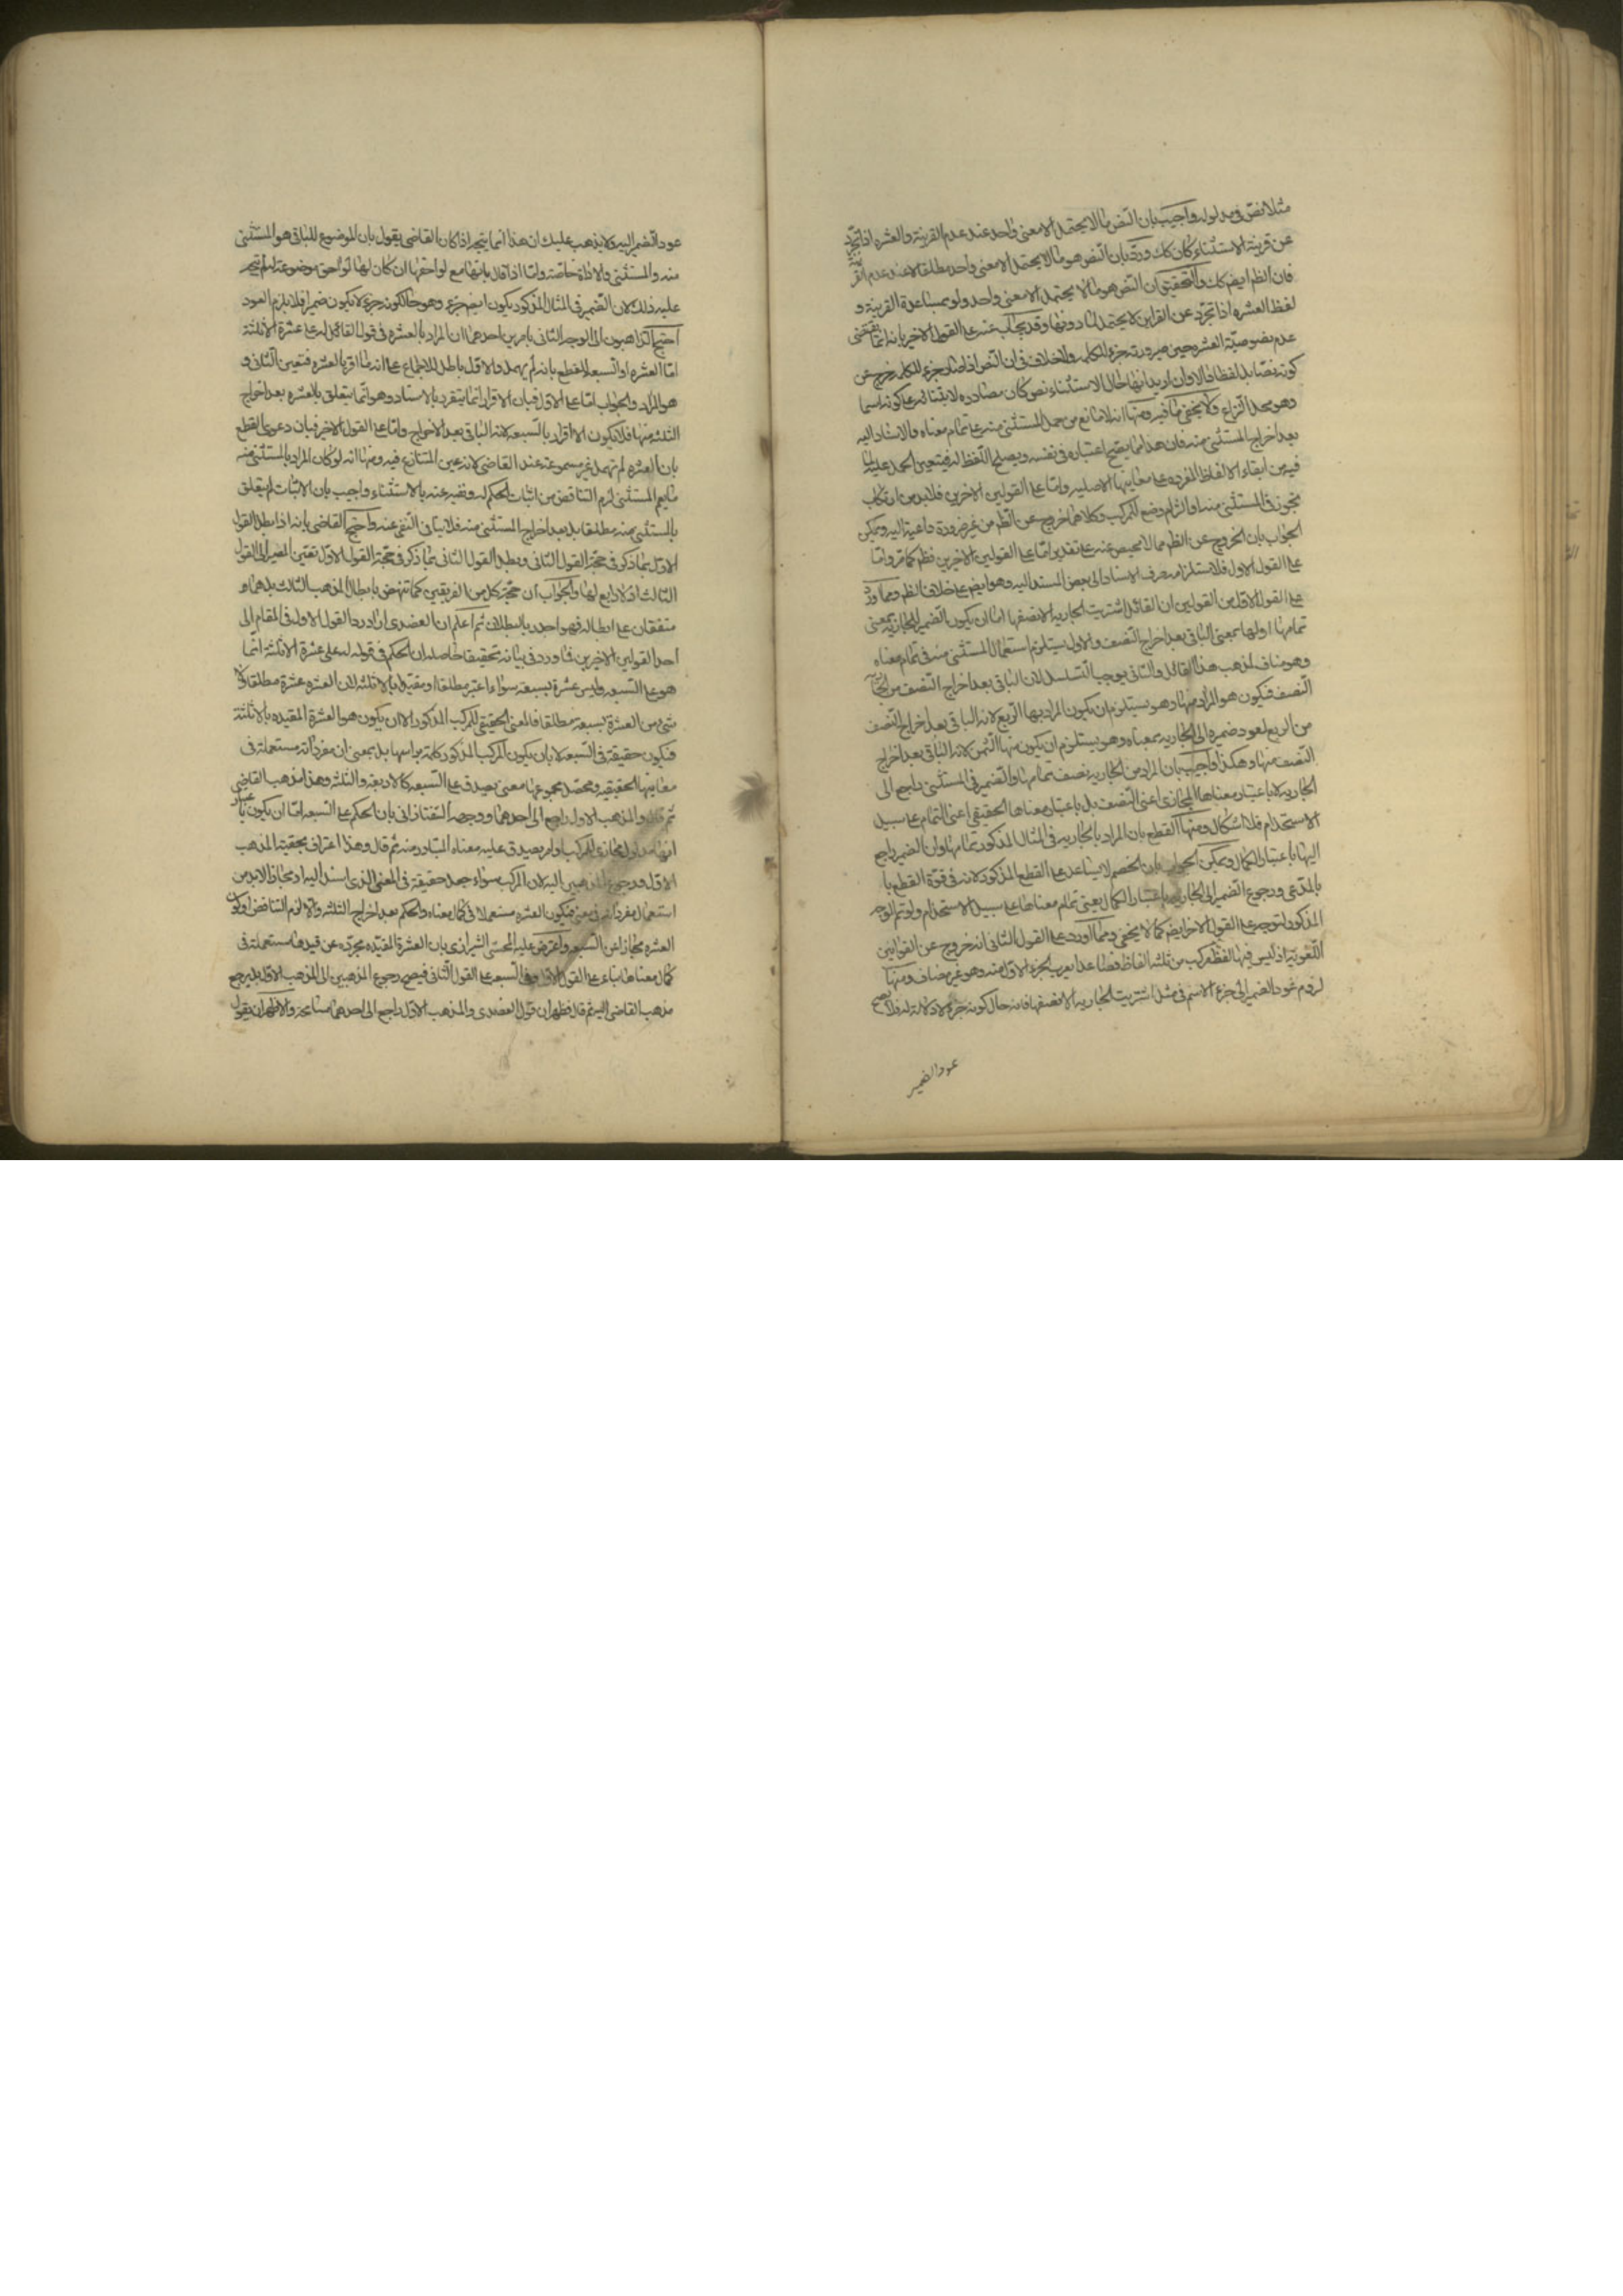 مثلا نص فى مدلوله واجيب بان النص ما لا يحتمل الا معنى واحد عند عدم القرينة والعشره اذا تجرد
عن قرينة الاستثناء كان كك ورد بان النص هو ما لا يحتمل الا معنى واحد مطلقا لا عند عدم القرينة
فان الظم ايضم كك والتحقيق ان النص هو ما لا يحتمل الا معنى واحد ولو بمساعدة القرينة و
لفظ العشره اذا تجرد عن القراين لا يحتمل لما دونها وقد يجاب عنه على القول الاخير بانه انما يقتضى
عدم نصوصية العشره حين صيرورته جزء للكلمه ولا خلاف فى ان النص اذا صار جزء للكلمه خرج عن
كونه نصا بل لفظا والاوان اريد انها حال الاستثناء نص كان مصادره لابتنائه على كونه اسما
وهو محل النزاع ولا يخفى ما فيه ومنها انه لا مانع من حمل المستثنى منه على تمام معناه والاسناد اليه
بعد اخراج المستثنى منه فان هذا مما يصح اعتباره فى نفسه ويصلح اللفظ له فيتعين الحمل عليه لما
فيه من ابقاء الالفاظ المفرده على معانيها الاصليه واما على القولين الاخرين فلا بد من ارتكاب
تجوز فى المستثنى منه او التزام وضع للمركب وكلاهما خروج عن الظم من غير ضرورة داعية اليه ويمكن
الجواب بان الخروج عن الظم مما لا محيص عنه على تقدير اما على القولين الاخرين فظم كما مر واما
على القول الاول فلاستلزامه صرف الاسناد الى بعض المسند اليه وهو ايضم على خلاف الظم ومما اورد
على القول الاول من القولين ان القائل اشتريت الجاريه الا نصفها اما ان يكون الضمير للجارية بمعنى
تمامها او لها بمعنى الباقى بعد اخراج النصف والاول يستلزم استعمال المستثنى منه فى تمام معناه
وهو مناف لمذهب هذا القائل والثانى يوجب التسلسل لان الباقى بعد اخراج النصف من الجارية
النصف فيكون هو المراد منها وهو يستلزم ان يكون المراد بها الربع لانه الباقى بعد اخراج النصف
من الربع لعود ضميره الى الجاريه بمعناه وهو يستلزم ان يكون منها الثمن لانه الباقى بعد اخراج
النصف منها وهكذا واجيب بان المراد من الجاريه نصف تمامها والضمير فى المستثنى راجع الى
الجاريه لا باعتبار معناها المجازى اعنى النصف بل باعتبار معناها الحقيقى اعنى التمام على سبيل
الاستخدام فلا اشكال ومنها القطع بان المراد بالجاريه فى المثال المذكور تمامها وان الضمير راجع
اليها باعتبار الكمال ويمكن الجواب بان الخصم لا يساعد على القطع المذكور لانه فى قوة القطع با
بالمدعى ورجوع الضمير الى الجاريه باعتبار الكمال يعنى تمام معناها على سبيل الاستخدام ولو تم الوجه
المذكور لتوجه على القول الاخر ايضم كما لا يخفى ومما اورد على القول الثانى انه خروج عن القوانين
اللغوية اذ ليس فيها لفظ مركب من ثلثه الفاظ فصاعدا يعرب الجزء الاول منه وهو غير مضاف ومنها
لزوم عود الضمير الى جزء الاسم فى مثل اشتريت الجاريه الا نصفها فانه حال كونه جزء لا دلالة له فلا يصح
عود الضمير
عود الضمير اليه ولا يذهب عليك ان هذا انما يتجه اذا كان القاضى يقول بان الموضوع للباقى هو المستثنى
منه والمستثنى والاداة خاصة واما اذا قال بانها مع لواحقها ان كان لها لواحق موضوعة له لم يتجه
عليه ذلك لان الضمير فى المثال المذكور يكون ايضم جزء وهو حال كونه جزء لا يكون ضميرا فلا يلزم العود
احتج الذاهبون الى الوجه الثانى بامرين احدهما ان المراد بالعشره فى قول القائل له على عشرة الا ثلثة
اما العشره او السبعه للقطع بانه لم يهمل والاول باطل للاجماع على انه ما اقر بالعشره فتعين الثانى و
هو المراد والجواب اما على الاول فبان الاقرار انما يتفرد بالاسناد وهو انما يتعلق بالعشره بعد اخراج
الثلثه منها فلا يكون الا اقرار بالسبعه لانه الباقى بعد الاخراج واما على القول الاخير فبان دعوى القطع
بان العشره لم تهمل غير مسموعة عند القاضى لانه عين المتنازع فيه ومنها انه لو كان المراد بالمستثنى منه
ما يعم المستثنى لزم التناقض من اثبات الحكم له ونفيه عنه بالاستثناء واجيب بان الاثبات لم يتعلق
بالمستثنى منه مطلقا بل بعد اخراج المستثنى منه فلا ينافى النفى عنه واحتج القاضى بانه اذا بطل القول
الاول بما ذكر فى حجة القول الثانى وبطل القول الثانى بما ذكر فى حجة القول الاول تعين المصير الى القول
الثالث اذ لا رابع لها والجواب ان حجة كل من الفريقين كما تنهض بابطال المذهب الثالث بل هما و
متفقان على ابطاله فهو اجدر بالبطلان ثم اعلم ان العضدى اراد رد القول الاول فى المقام الى
احد القولين الاخيرين فاورد فى بيانه تحقيقا حاصله ان الحكم فى قوله له على عشرة الا ثلثة انما
هو على السبعه وليس عشرة لسبعة سواء اعتبر مطلقا او مقيدا بالا ثلثه لان العشره عشرة مطلقا ولا
شئ من العشرة بسبعة مطلقا فالمعنى الحقيقى للمركب المذكور الا ان يكون هو العشرة المقيده بالا ثلثة
فيكون حقيقة فى السبعه لا بان يكون المركب المذكور كلمة براسها بل بمعنى ان مفرداته مستعملة فى
معانيها الحقيقيه ومحصل مجموعها معنى يصدق على السبعه كالاربعة والثلثه وهذا مذهب القاضى
ثم قال والمذهب الاول راجع الى احدهما ووجهه التفتازانى بان الحكم على السبعه اما ان يكون باعتبار
انها مدلول مجازى للمركب او لم يصدق عليه معناه المتبادر منه ثم قال وهذا اعتراف بحقيقة المذهب
الاول ورجوع المذهبين اليه لان المركب سواء جعل حقيقة فى المعنى الذى اسند اليه او مجازا لا بد من
استعمال مفرداته فى معنى فيكون العشره مستعملا فى كمال معناه والحكم بعد اخراج الثلثه والا لزم التناقض او كون
العشره مجازا عن السبعه واعترض عليه المحشى الشيرازى بان العشرة المقيده مجرده عن قيدها مستعملة فى
كمال معناها بناء على القول الاول وفى السبعه على القول الثانى فيصح رجوع المذهبين الى المذهب الاول بل يرجع
مذهب القاضى اليه ثم قال فظهر ان قول العضدى والمذهب الاول راجع الى احدهما مسامحة والاظهر ان يقول